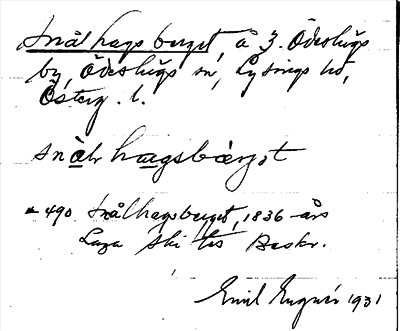 Snålhagsberget, å 3. Ödeshögs
by, Ödeshögs sn, Lysings hd,
Österg. l.
snålr hagsbærgət
490 Snålhagsberget, 1836 års
Laga Skiftes Beskr.
Emil Engnér 1931